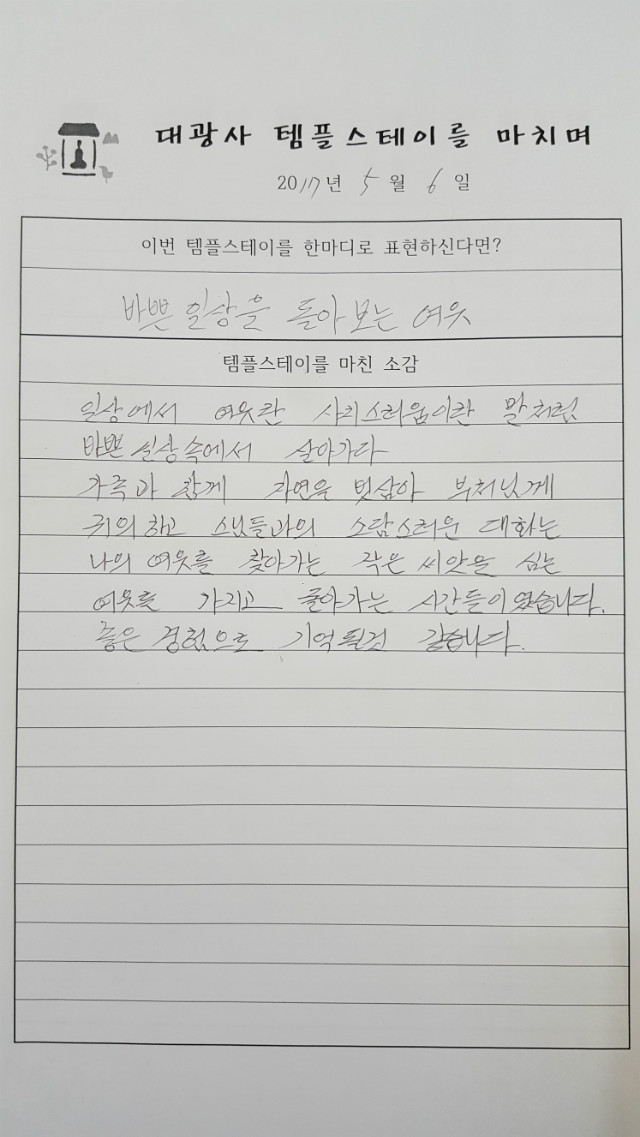 대광사 템플스테이를 마치며
2017년 5월 6일
이번 템플스테이를 한마디로 표현하신다면?
바쁜 일상을 돌아보는 여유
템플스테이를 마친 소감
일상에서 여유란 사치스러움이란 말처럼
바쁜 일상속에서 살아가다
가족과 함께 자연을 벗삼아 부처님께
귀의하고 스님들과의 소담스러운 대화는
나의 여유를 찾아가는 작은 씨앗을 심는
여유를 가지고 돌아가는 시간들이였습니다.
좋은 경험으로 기억될것 같습니다.